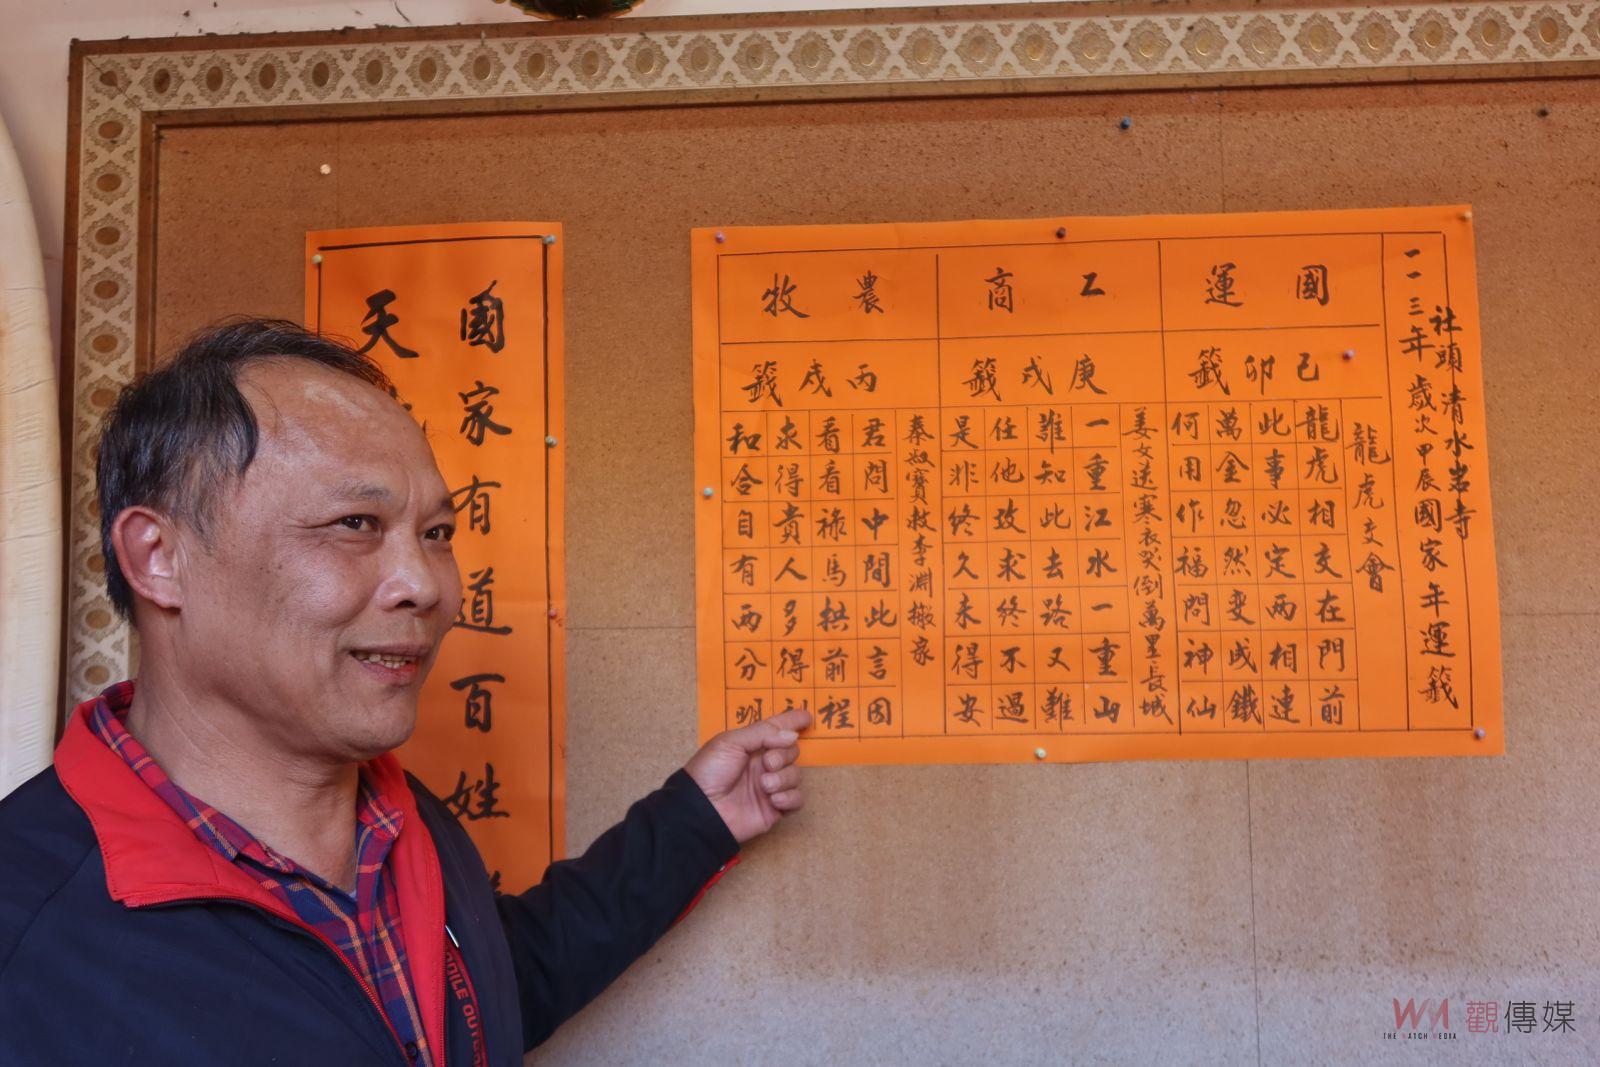 社頭清水岩寺
一一三年歲次甲辰國家年運籤
國運
己卯籤
龍虎交會
龍虎相交在門前
此事必定兩相連
萬金忽然變成鐵
何用作福問神仙
工商
庚戌籤
姜女送寒衣哭倒萬里長城
一重江水一重山
誰知此去路又難
任他改求終不過
是非終久未得安
農牧
丙戌籤
秦叔寶救李淵搬家
君問中間此言因
看看祿馬拱前程
求得貴人多得利
和合自有兩分明
國家有道百姓
天
WM 觀傳媒
THE WATCH MEDIA